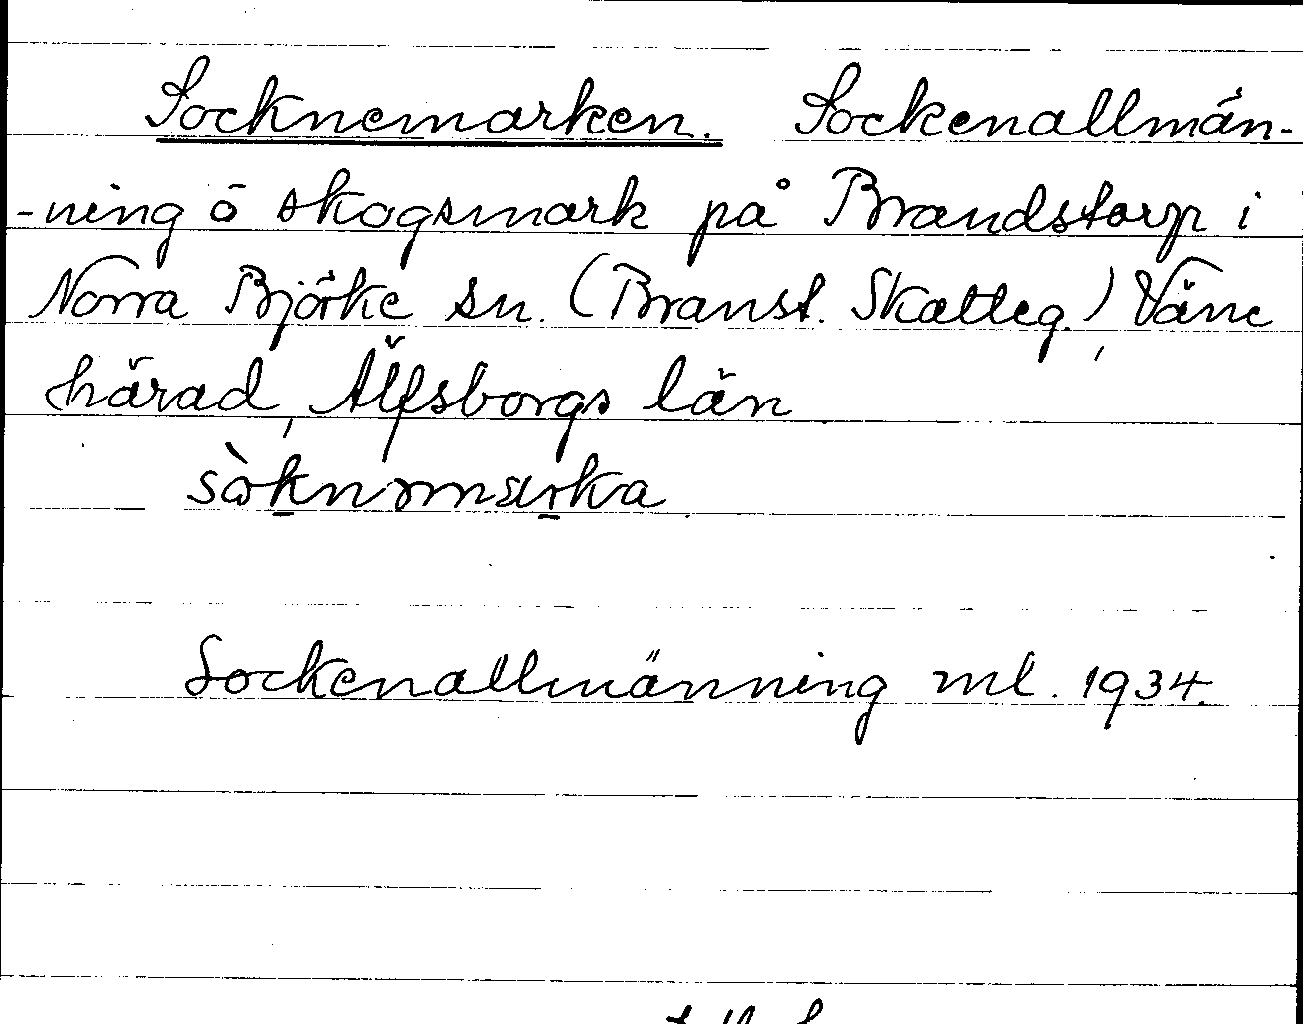 Socknemarken. Sockenallmän-
-ning o skogsmark på Brandstorp i
Norra Björke sn. (Branst. Skatteg.), Väne
härad, Älfsborgs län
Sockenallmänning ml. 1934.